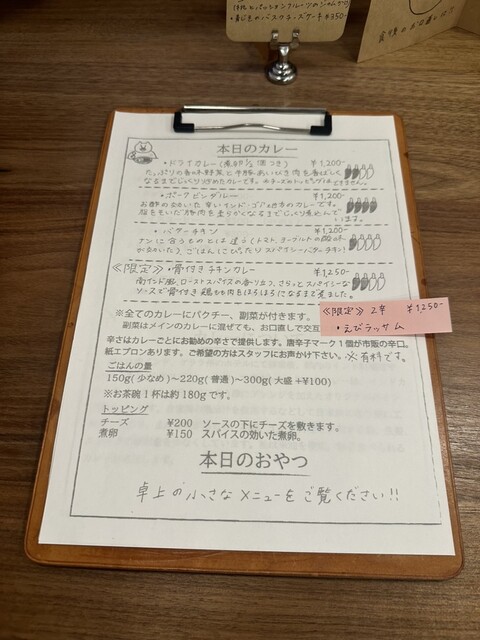 ¥350-
食後のお口直しに
本日のカレー
・ドライカレー(煮卵½個つき) ¥1,200-
たっぷりの香味野菜と牛豚あいびき肉を香ばしく
なるまでじっくり炒めたカレーです。※チーズのトッピングはできません。
・ポークビンダルー ¥1,200-
お酢の効いた辛いインド・ゴア地方のカレーです。
脂をそいだ豚肉を柔らかくなるまでじっくり煮込んでいます。
・バターチキン ¥1,200-
ナンに合うものとは違って(トマト、ヨーグルトの酸味
が効いた)、ごはんにぴったりスパイシーバターチキン!
≪限定≫・骨付きチキンカレー ¥1,250-
南インド風、ローストスパイスの香り立つ、さらっとスパイシーな
ソースで骨付き鶏もも肉もほろほろになるまで煮ました。
≪限定≫ 2辛 ¥1,250-
・えびラッサム
※全てのカレーにパクチー、副菜が付きます。
副菜はメインのカレーに混ぜても、お口直しで交互
辛さはカレーごとにお勧めの辛さで提供します。唐辛子マーク1個が市販の辛口。
紙エプロンあります。ご希望の方はスタッフにお声かけ下さい。※有料です。
ごはんの量
150g(少なめ)~220g(普通)~300g(大盛+¥100)
※お茶碗1杯は約180gです。
トッピング
チーズ ¥200 ソースの下にチーズを敷きます。
煮卵 ¥150 スパイスの効いた煮卵。
本日のおやつ
卓上の小さなメニューをご覧ください!!